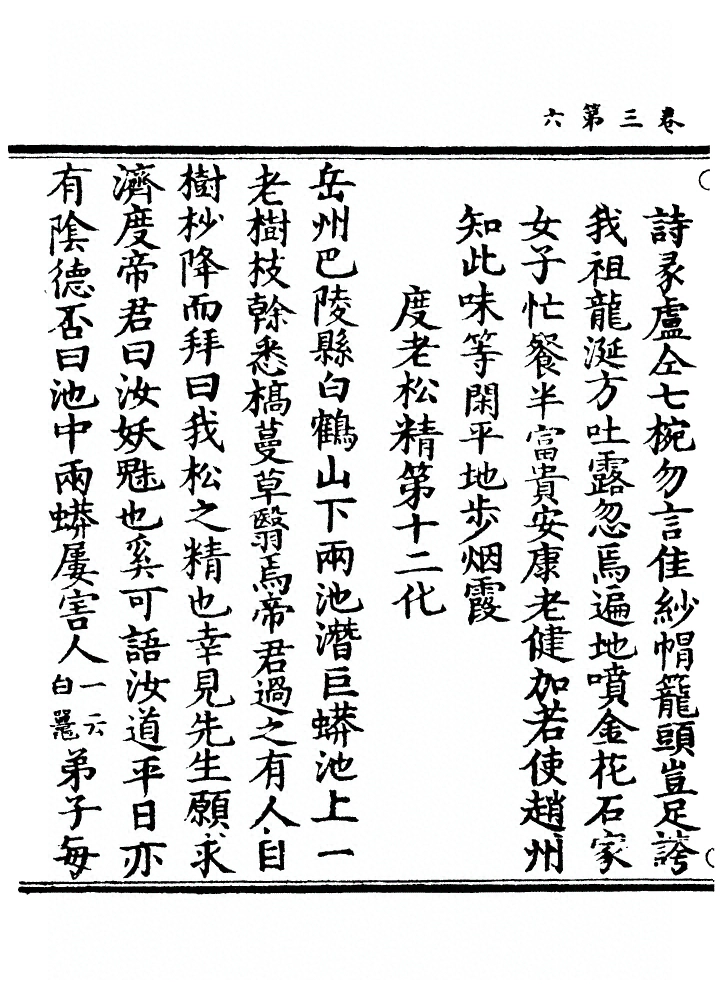 卷三第六
詩彖盧仝七椀勿言佳紗帽籠頭豈足誇
我祖龍涎方吐露忽焉遍地噴金花石家
女子忙餐半富貴安康老健加若使趙州
知此味等閑平地步烟霞
度老松精第十二代
岳州巴陵縣白鶴山下兩池潛巨蟒池上一
老樹枝幹悉槁蔓草翳焉帝君過之有人自
樹杪降而拜曰我松之精也幸見先生願求
濟度帝君曰汝妖魅也奚可語汝道平日亦
有陰德否曰池中兩蟒屢害人一云白鼉弟子每